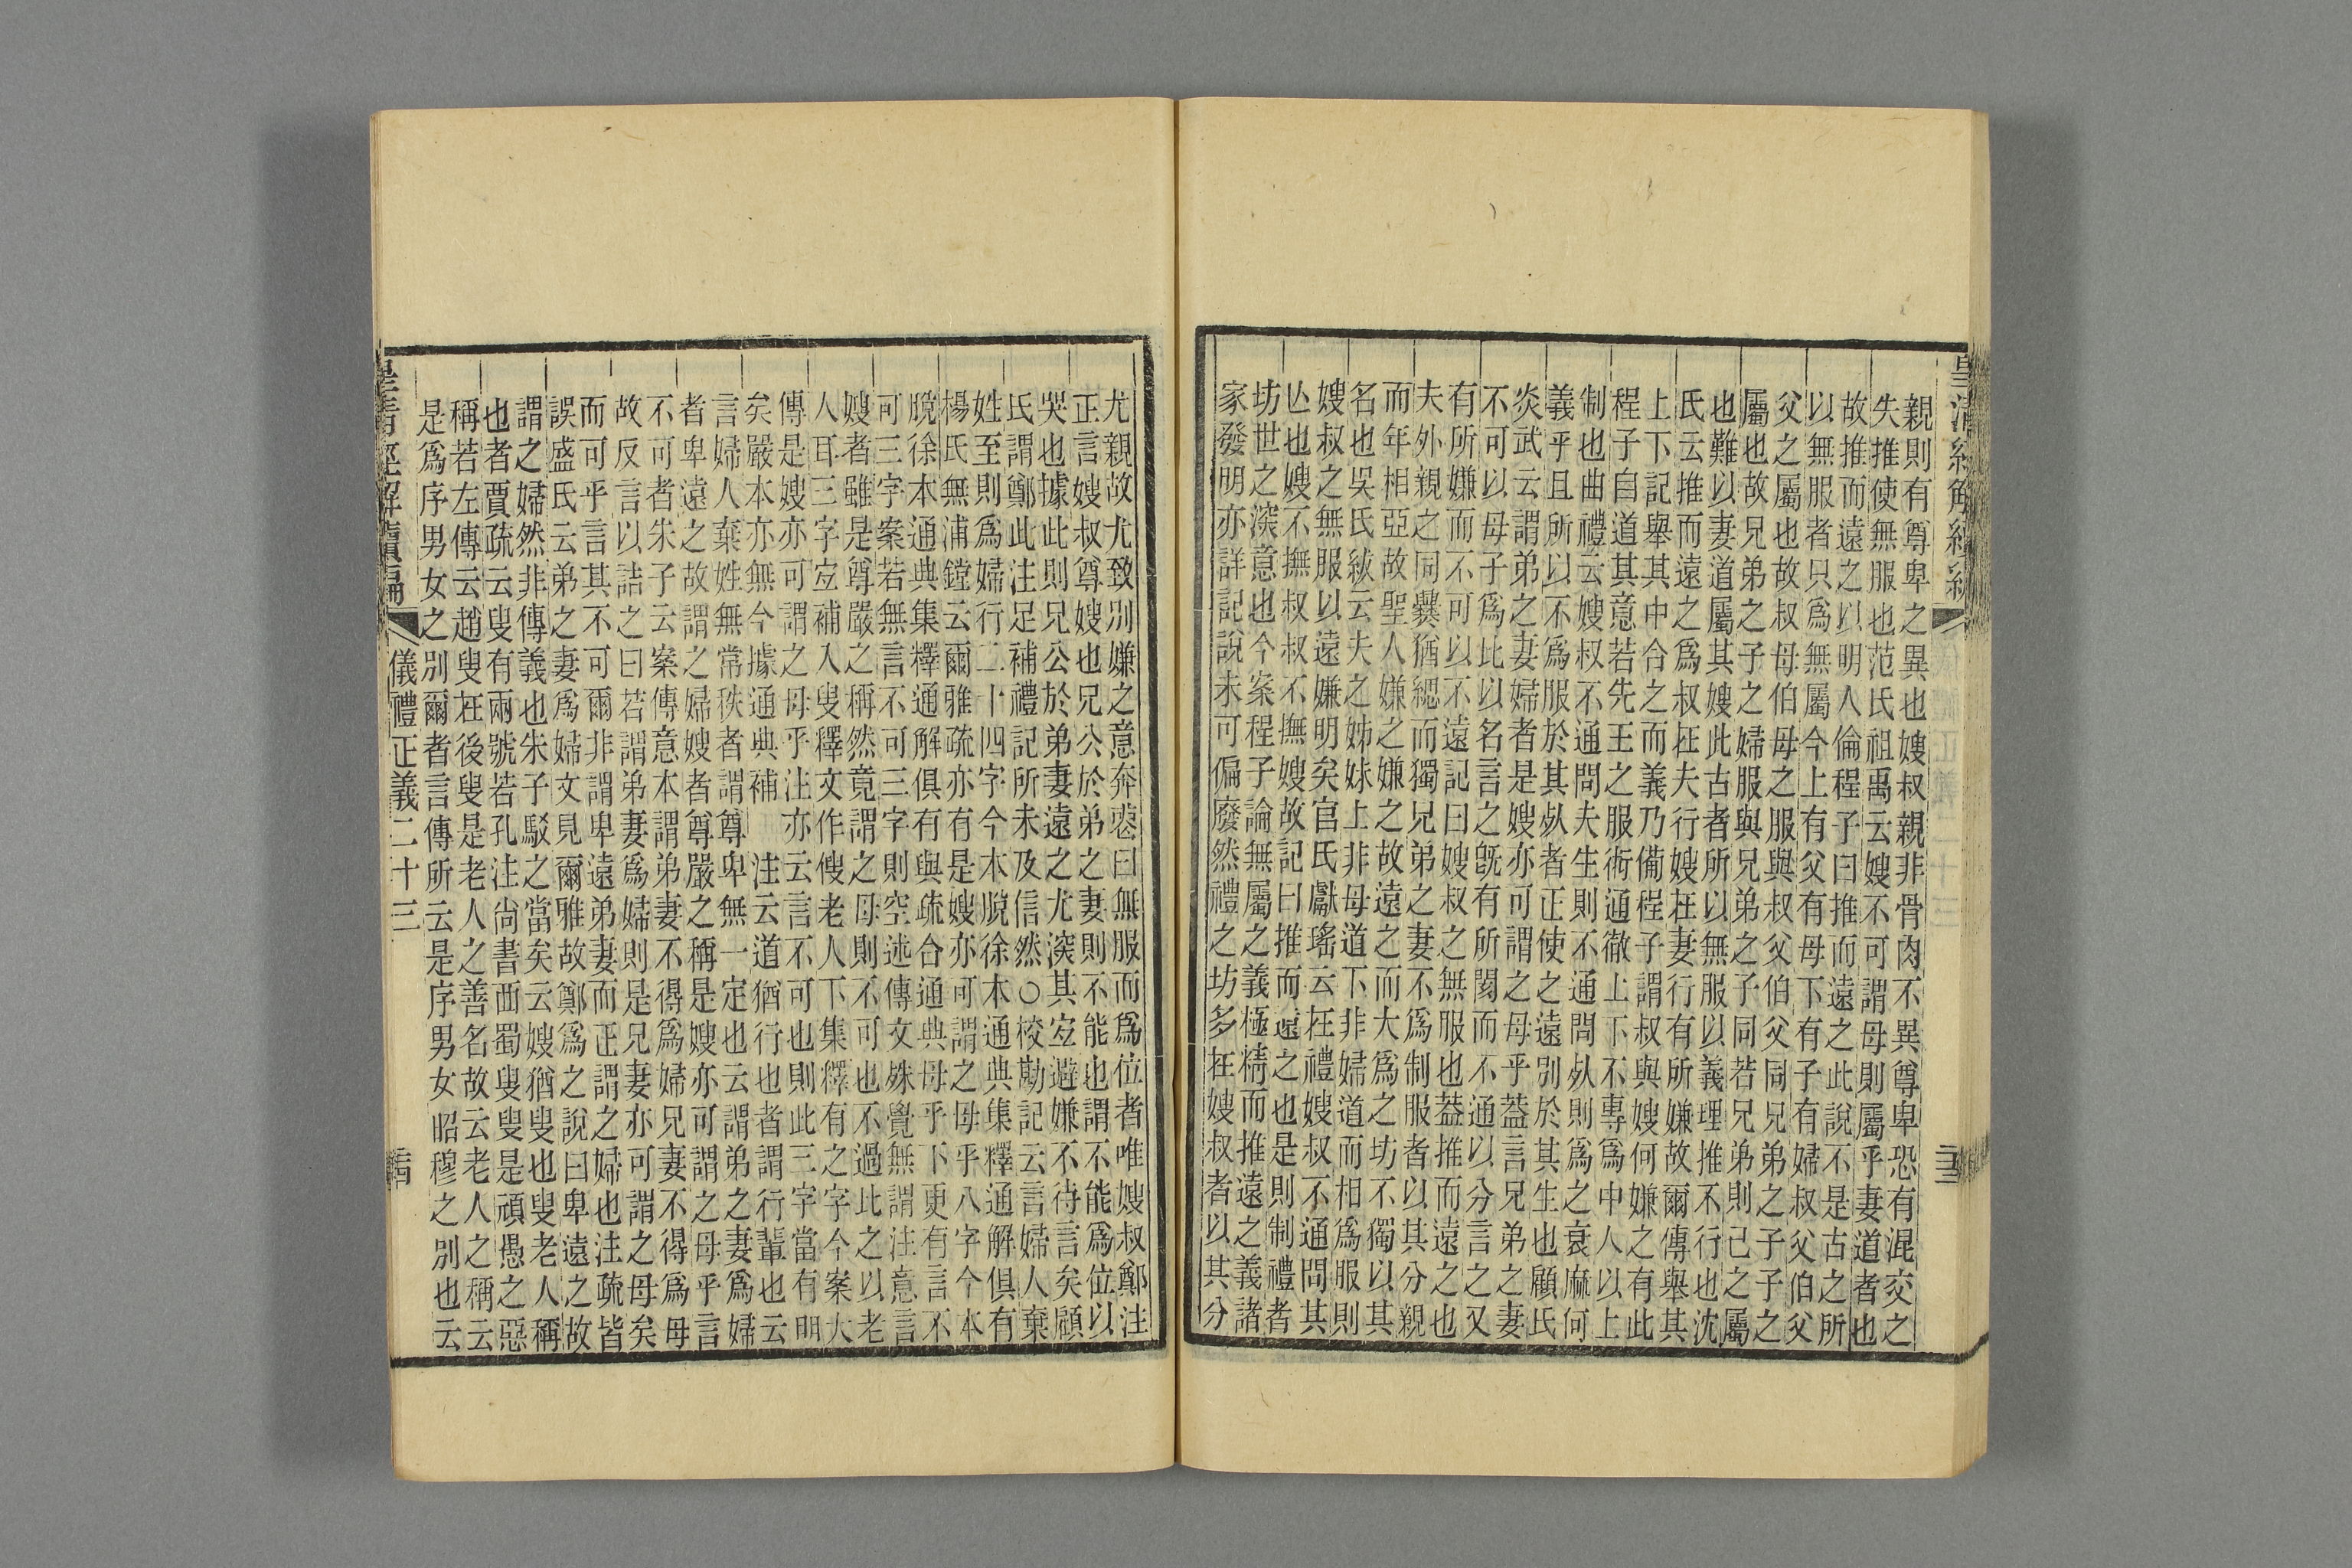 親則有尊卑之異也嫂叔親非骨肉不異尊卑恐有混交之
失推使無服也范氏祖禹云嫂不可謂母則屬乎妻道者也
故推而遠之以明人倫程子曰推而遠之此說不是古之所
以無服者只爲無屬今上有父有母下有子有婦叔父伯父
父之屬也故叔母伯母之服與叔父伯父同兄弟之子子之
屬也故兄弟之子之婦服與兄弟之子子同若兄弟則己之屬
也難以妻道屬其嫂此古者所以無服以義理推不行也沈
氏云推而遠之爲叔在夫行嫂在妻行有所嫌故爾傳舉其
上下記舉其中合之而義乃備程子謂叔與嫂何嫌之有此
程子自道其意若先王之服術通徹上下不專爲中人以上
制也曲禮云嫂叔不通問夫生則不通問歿則爲之衰麻何
義乎且所以不爲服於其歿者正使之遠別於其生也顧氏
炎武云謂弟之妻婦者是嫂亦可謂之母乎蓋言兄弟之妻
不可以母子爲比以名言之旣有所閡而不通以分言之又
有所嫌而不可以不遠記曰嫂叔之無服也蓋推而遠之也
夫外親之同爨猶緦而獨兄弟之妻不爲制服者以其分親
而年相亞故聖人嫌之嫌之故遠之而大爲之坊不獨以其
名也吳氏紱云夫之姊妹上非母道下非婦道而相爲服則
嫂叔之無服以遠嫌明矣官氏獻瑤云在禮嫂叔不通問其
亾也嫂不撫叔叔不撫嫂故記曰推而遠之也是則制禮者
坊世之深意也今案程子論無屬之義極精而推遠之義諸
家發明亦詳記說未可偏廢然禮之坊多在嫂叔者以其分
尤親故尤致別嫌之意奔喪曰無服而爲位者唯嫂叔鄭注
正言嫂叔尊嫂也兄公於弟之妻則不能也謂不能爲位以
哭也據此則兄公於弟妻遠之尤深其宜避嫌不待言矣顧
氏謂鄭此注足補禮記所未及信然○校勘記云言婦人棄
姓至則爲婦行二十四字今本脫徐本通典集釋通解俱有
楊氏無浦鏜云爾雅疏亦有是嫂亦可謂之母乎八字今本
脫徐本通典集釋通解俱有與疏合通典母乎下更有言不
可三字案若無言不可三字則空述傳文殊覺無謂注意言
嫂者雖是尊嚴之稱然竟謂之母則不可也不過此之以老
人耳三字宜補入叟釋文作傁老人下集釋有之字今案大
傳是嫂亦可謂之母乎注亦云言不可也則此三字當有明
矣嚴本亦無今據通典補 注云道猶行也者謂行輩也云
言婦人棄姓無常秩者謂尊卑無一定也云謂弟之妻爲婦
者卑遠之故謂之婦嫂者尊嚴之稱是嫂亦可謂之母乎言
不可者朱子云案傳意本謂弟妻不得爲婦兄妻不得爲母
故反言以詰之曰若謂弟妻爲婦則是兄妻亦可謂之母矣
而可乎言其不可爾非謂卑遠弟妻而正謂之婦也注疏皆
誤盛氏云弟之妻爲婦文見爾雅故鄭爲之說曰卑遠之故
謂之婦然非傳義也朱子駁之當矣云嫂猶叟也叟老人稱
也者賈疏云叟有兩號若孔注尙書西蜀叟叟是頑愚之惡
稱若左傳云趙叟在後叟是老人之善名故云老人之稱云
是爲序男女之別爾者言傳所云是序男女昭穆之別也云
皇清經解續編 儀禮正義二十三